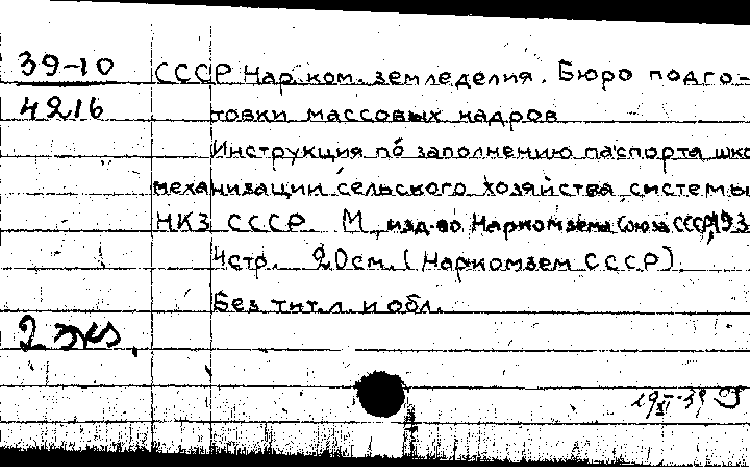 39-10
4216
СССР Нар.ком. земледелия. Бюро подго-
товки массовых кадров
Инструкция по заполнению паспорта шко
механизации сельского хозяйства системы
НКЗ СССР. М, изд-во Наркомзема Союза ССР, 193
4стр. 20см. (Наркомзем СССР)
Без тит.л. и обл.
2 экз.